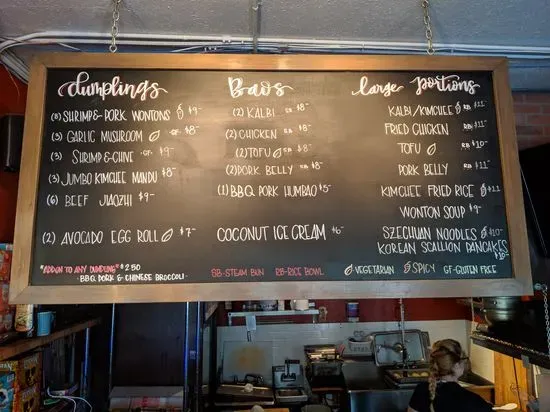 dumplings
(8) SHRIMP & PORK WONTONS $9-
(5) GARLIC MUSHROOM GF $8-
(3) SHRIMP & CHIVE GF $9-
(3) JUMBO KIMCHEE MANDU $8-
(6) BEEF JIAOZHI $9-
(2) AVOCADO EGG ROLL $7-
"ADD ON TO ANY DUMPLING" $2.50
- BBQ PORK & CHINESE BROCCOLI -
Baos
(2) KALBI $8-
(2) CHICKEN $8-
(2) TOFU $8-
(2) PORK BELLY $8-
(1) BBQ PORK HUMBAO $5-
COCONUT ICE CREAM $6-
large portions
KALBI/KIMCHEE RB $11-
FRIED CHICKEN RB $11-
TOFU RB $10-
PORK BELLY RB $11-
KIMCHEE FRIED RICE $11
WONTON SOUP $9-
SZECHUAN NOODLES $10-
KOREAN SCALLION PANCAKES
$10-
SB-STEAM BUN RB-RICE BOWL VEGETARIAN SPICY GF-GLUTEN FREE